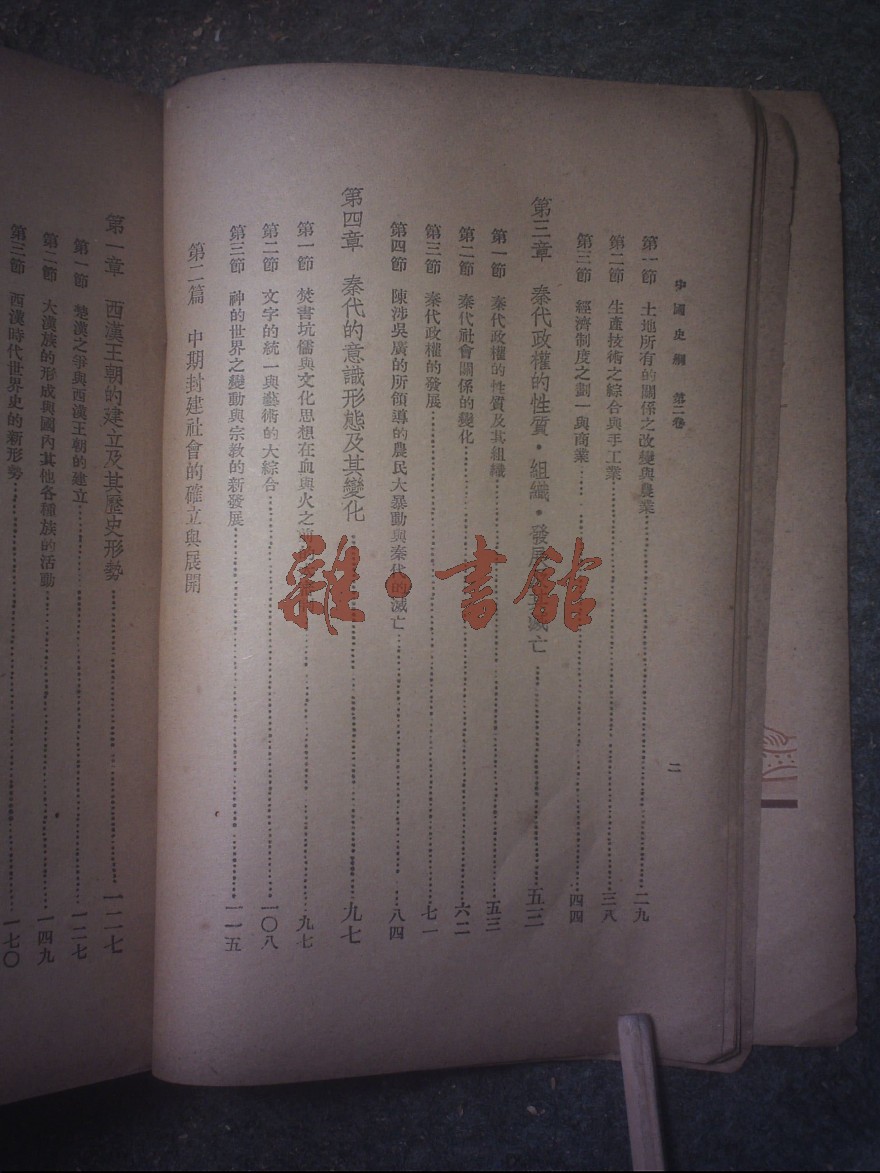 中國史綱　第二卷
二
第一節　土地所有的關係之改變與農業……二九
第二節　生產技術之綜合與手工業……三八
第三節　經濟制度之劃一與商業……四四
第三章　秦代政權的性質・組織・發展　滅亡……五三
第一節　秦代政權的性質及其組織……五三
第二節　秦代社會關係的變化……六二
第三節　秦代政權的發展……七一
第四節　陳涉吳廣的所領導的農民大暴動與秦代的滅亡……八四
第四章　秦代的意識形態及其變化……九七
第一節　焚書坑儒與文化思想在血與火之……九七
第二節　文字的統一與藝術的大綜合……一〇八
第三節　神的世界之變動與宗教的新發展……一一五
第二篇　中期封建社會的確立與展開
第一章　西漢王朝的建立及其歷史形勢……一二七
第一節　楚漢之爭與西漢王朝的建立……一二七
第二節　大漢族的形成與國內其他各種族的活動……一四九
第三節　西漢時代世界史的新形勢……一七〇
雜・書館